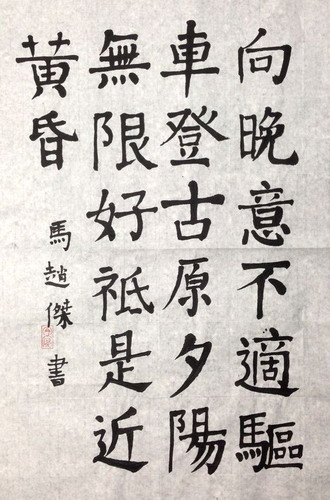 向晚意不適驅
車登古原夕陽
無限好祗是近
黃昏
馬趙傑書